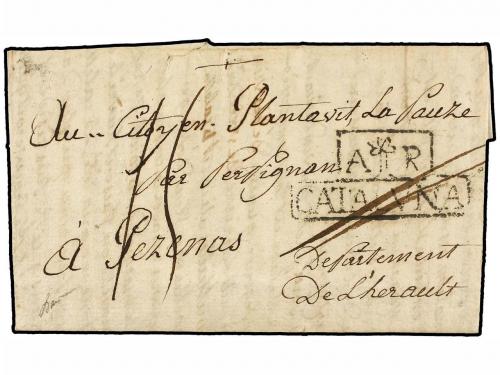 Au Citoyen Plantavit La Pauze
Par Perpignan
A R
CATALVÑA
à Pezenas
15
Departement
De L'herault